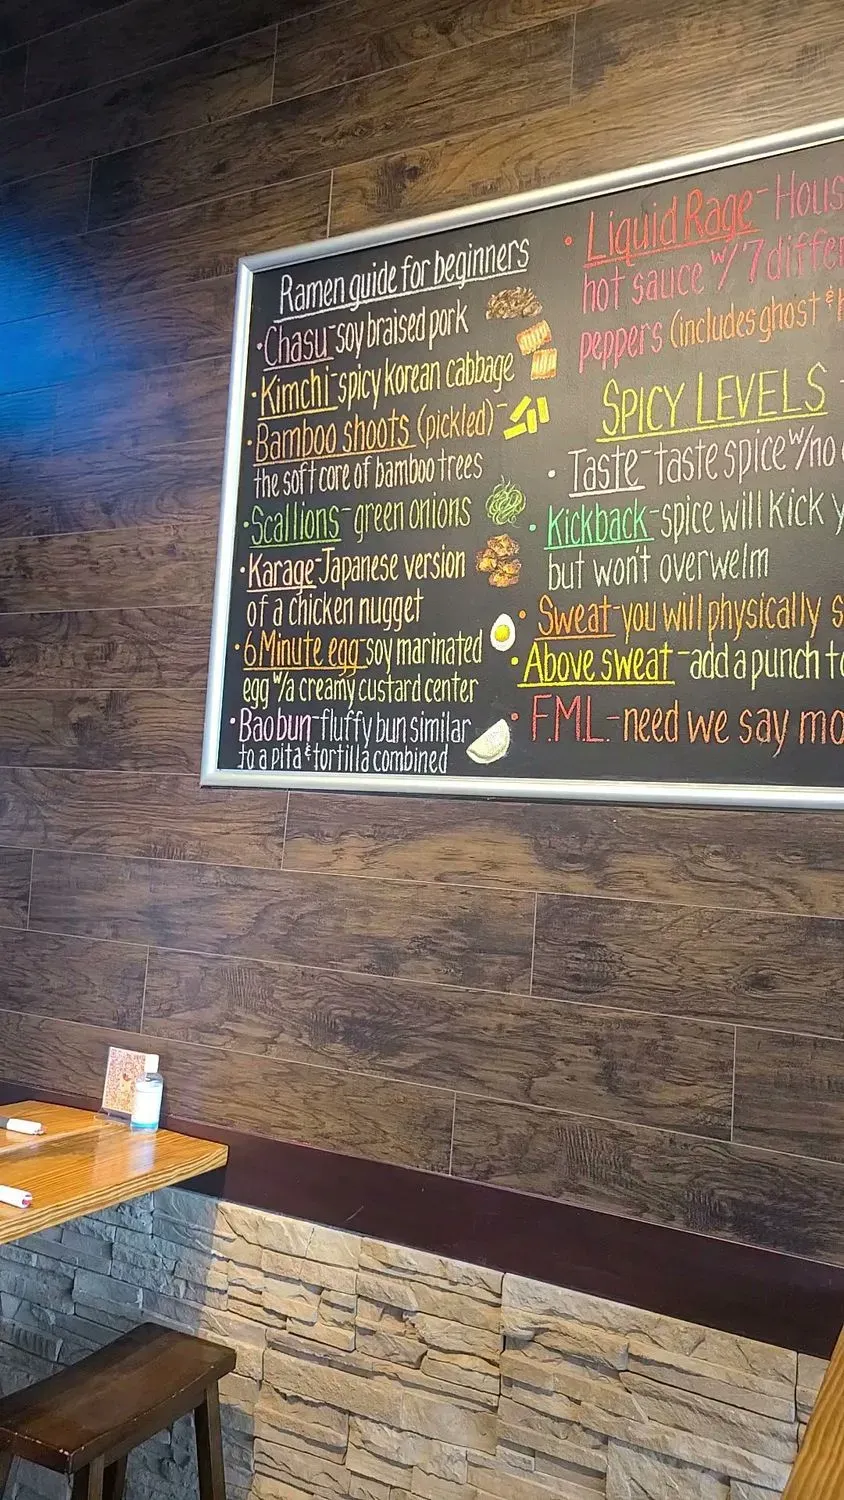 Ramen guide for beginners
• Chasu - soy braised pork
• Kimchi - spicy korean cabbage
• Bamboo shoots (pickled) -
the soft core of bamboo trees
• Scallions - green onions
• Karage - Japanese version
of a chicken nugget
• 6 Minute egg - soy marinated
egg w/a creamy custard center
• Bao bun - fluffy bun similar
to a pita & tortilla combined
• Liquid Rage - Hous
hot sauce w/ 7 differ
peppers (includes ghost &
SPICY LEVELS -
• Taste - taste spice w/no
• Kickback - spice will kick y
but won't overwelm
• Sweat - you will physically s
• Above sweat - add a punch to
• F.M.L. - need we say mo